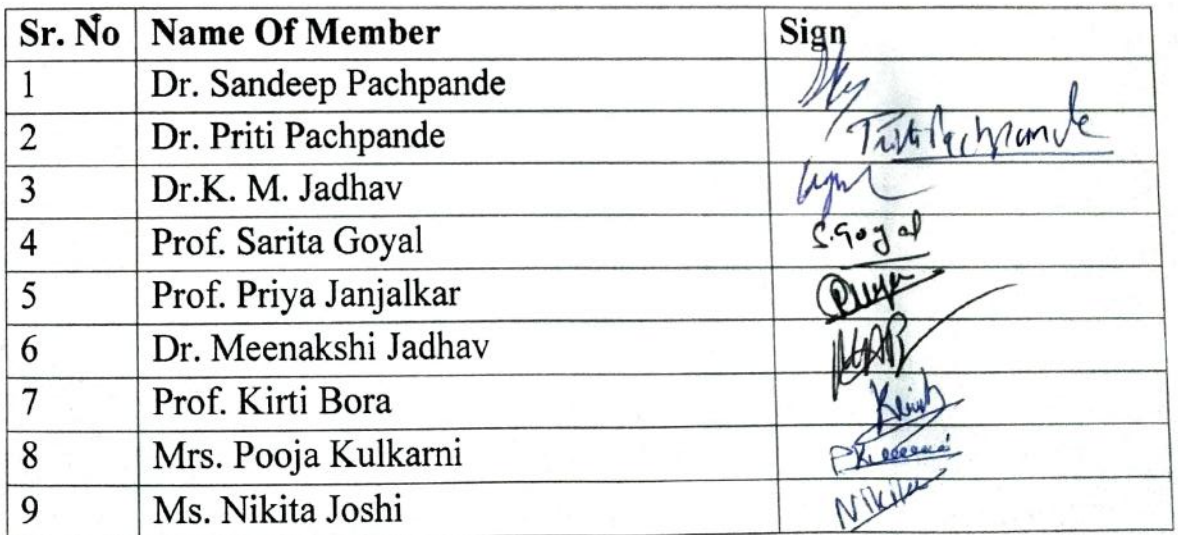 Sr. No Name Of Member Sign
1 Dr. Sandeep Pachpande
2 Dr. Priti Pachpande Priti Pachpande
3 Dr.K. M. Jadhav
4 Prof. Sarita Goyal S. Goyal
5 Prof. Priya Janjalkar Priya
6 Dr. Meenakshi Jadhav
7 Prof. Kirti Bora Kirti
8 Mrs. Pooja Kulkarni
9 Ms. Nikita Joshi Nikita